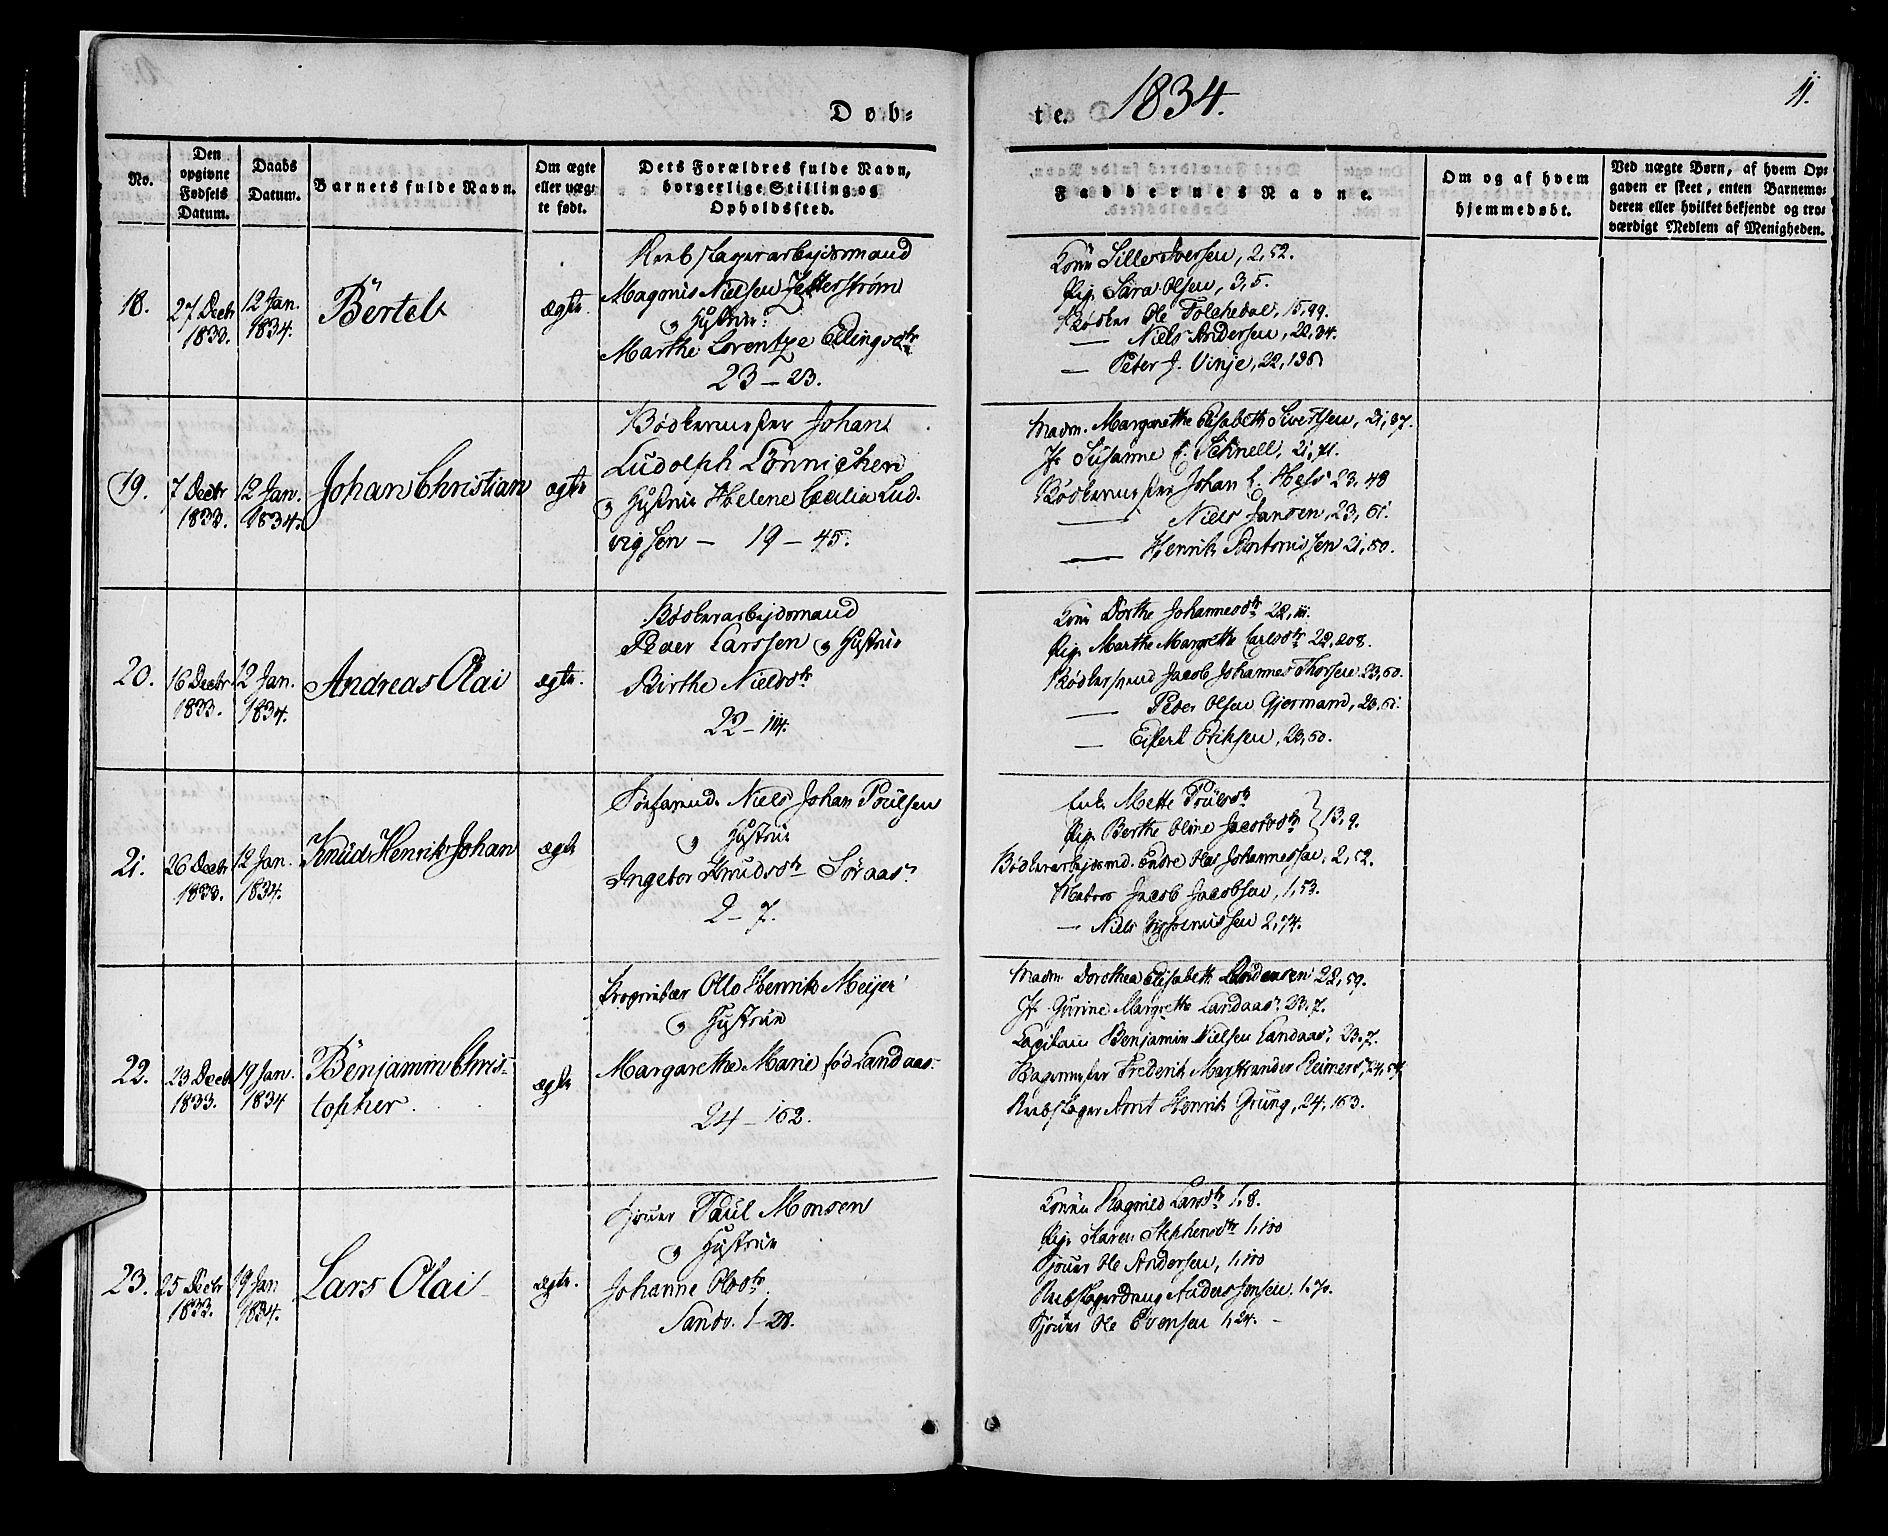 Døb-
te. 1834.
11.
No.
Den
opgivne
Fødsels
Datum.
Daabs
Datum.
Barnets fulde Navn.
Om ægte
eller uæg-
te født.
Dets Forældres fulde Navn,
borgerlige Stilling og
Opholdssted.
Faddernes Navne.
Om og af hvem
hjemmedøbt.
Ved uægte Børn, af hvem Op-
gaven er skeet, enten Barnemo-
deren eller hvilket bekjendt og tro-
værdigt Medlem af Menigheden.
18.
27 Decbr
1833.
12 Jan.
1834.
Bertel
ægte.
Reebslagerarbejdsmand
Magonis Nielsen Zetterstrøm
og Hustrue
Marthe Lorentze Ellingsdtr
23 - 23.
Kone Sille Iversen, 2, 52.
Pige Sara Olsen, 3, 5.
Bødker Ole Folchedal, 15, 99.
— Niels Andersen, 22, 34.
— Peter J. Vinje, 22,
19.
7 Decbr
1833.
12 Jan.
1834.
Johan Christian
ægte
Bødkermester Johan
Ludolph Lønnichen
og Hustrue Helene Cecilia Lud-
vigsen - 19 - 45.
Madm. Margarethe Elisabeth Sivertsen, 21, 37.
Jfr Susanne C. Schnell, 21, 71.
Bødkermester Johan C. Hess 23, 48
— Niels Jansen, 23, 61.
— Henrik Antonissen 21, 50.
20.
16 Decbr
1833.
12 Jan.
1834.
Andreas Olai
ægte.
Bødkerarbejdsmand
Peder Larssen og Hustrue
Birthe Nielsdtr
22 - 114.
Kone Dorthe Johannesdtr 22, 111.
Pige Marthe Margrethe Carlsdtr 22, 208.
Bødkersvend Jacob Johannes Thorsen 23, 60.
— Peder Olsen Gjermand, 23, 61.
— Eilert Eriksen, 23, 60.
21.
26 Decbr
1833.
12 Jan.
1834.
Knud Henrik Johan
ægte
Søfarend. Niels Johan Poulsen
og Hustrue
Ingebor Knudsdtr Søraas.
2 - 7.
Enke Mette Poulsdtr
Pige Berthe Oline Jacobsdtr } 13, 9.
Bødkerarbejdsmd. Endre Olai Johannessen, 2, 52.
Matros Jacob Jacobsen, 1, 53.
— Niels 2, 74.
22.
23 Decbr
1833.
19 Jan.
1834
Benjamin Chris-
topher.
ægte
Proprietær Otto Henrik Meijer
og Hustrue
Margarethe Marie fød Landaas
24 - 162.
Madm Dorothea Elisabeth 22, 59.
Jfr Gurine Margrethe Landaas, 23, 7.
Capitain Benjamin Nielsen Landaas, 23, 7.
Bagermester Frederik Marstrander Reimers, 24, 54
Reebslager Arnt Henrik Grung, 24, 163.
23.
25 Decbr
1833.
19 Jan
1834.
Lars Olai
ægte.
Sjouer Paul Monsen
og Hustrue
Johanne Olsdtr
Sandv. 1 - 28.
Konen Ragnild Larsdtr 1, 8.
Pige Karen Stephensdtr 1, 100
Sjouer Ole Andersen, 1, 100
Reebslagerdreng Anders Jensen, 1, 70.
Sjouer Ole Evensen 1, 24.